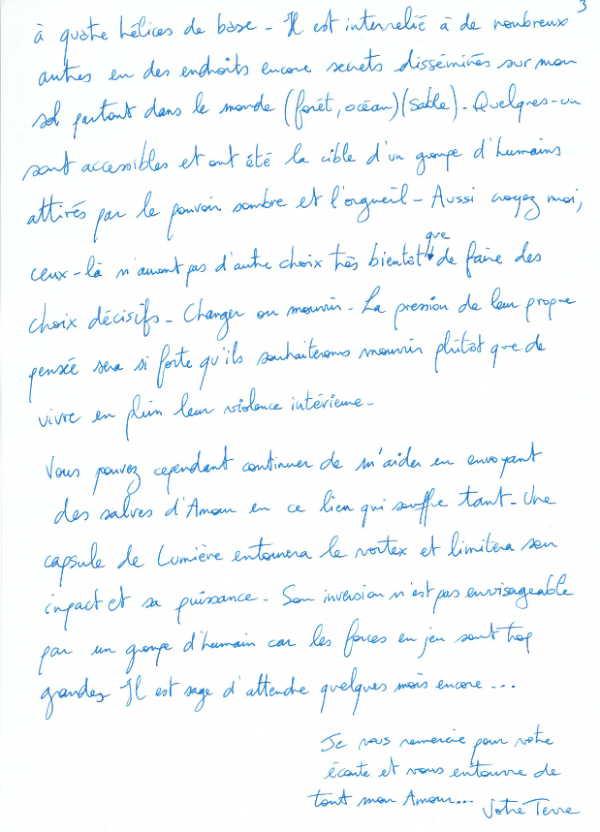 3
à quatre hélices de base - Il est interrelié à de nombreux
autres en des endroits encore secrets disséminés sur mon
sol partout dans le monde (forêt, océan)(sable). Quelques-un
sont accessibles et ont été la cible d'un groupe d'humains
attirés par le pouvoir sombre et l'orgueil - Aussi croyez moi,
ceux-là n'auront pas d'autre choix très bientôt que de faire des
choix décisifs - Changer ou mourir - La pression de leur propre
pensée sera si forte qu'ils souhaiterons mourir plutôt que de
vivre en plein leur violence intérieure -
Vous pouvez cependant continuer de m'aider en envoyant
des salves d'Amour en ce lieu qui souffre tant - Une
capsule de Lumière entourera le vortex et limitera son
impact et sa puissance - Son inversion n'est pas envisageable
par un groupe d'humain car les forces en jeu sont trop
grandes Il est sage d'attendre quelques mois encore ...
Je vous remercie pour votre
écoute et vous entoure de
tout mon Amour...
Votre Terre